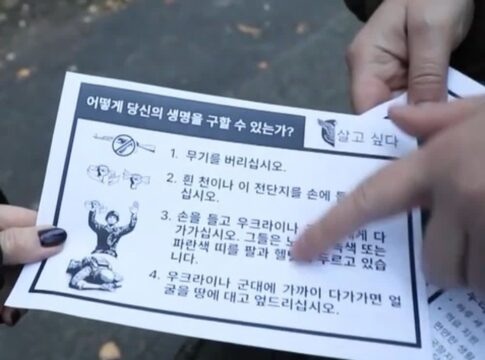 어떻게 당신의 생명을 구할 수 있는가?
살고 싶다
1. 무기를 버리십시오.
2. 흰 천이나 이 전단지를 손에
십시오.
3. 손을 들고 우크라이나 다
가가십시오. 그들은 또는
파란색 띠를 팔과 두르고 있습
니다.
4. 우크라이나 군대에 가까이 다가가면 얼
굴을 땅에 대고 엎드리십시오.